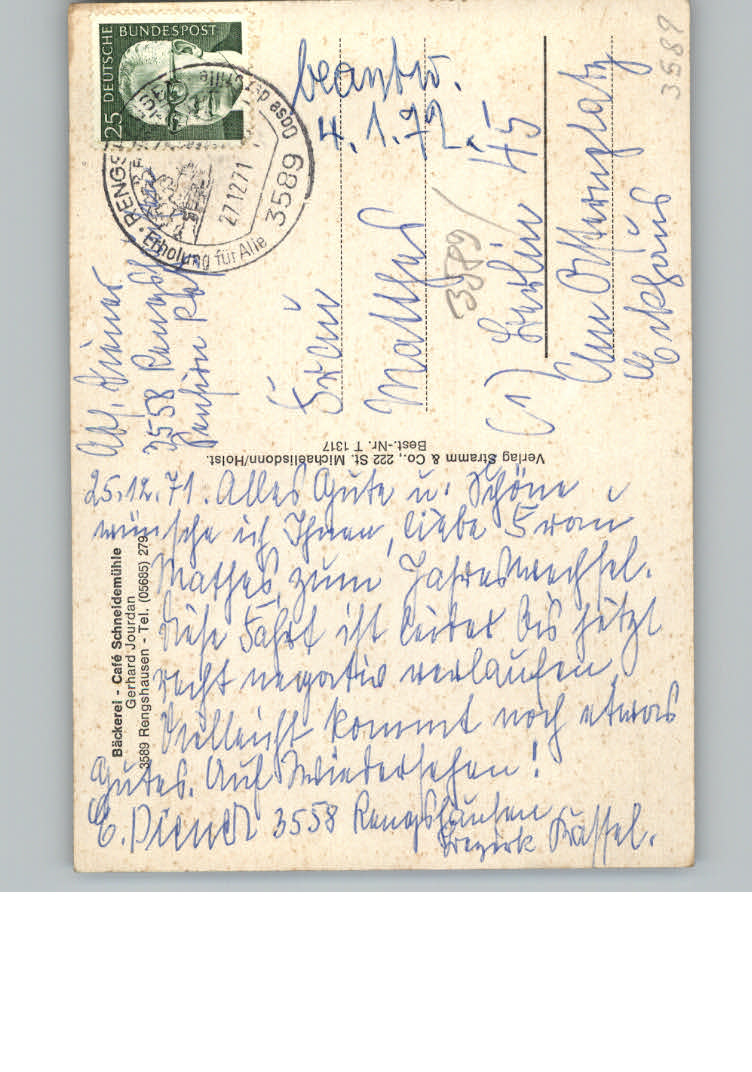 DEUTSCHE BUNDESPOST
25
RENGS
Oase der Stille
27.12.71
3589
Erholung für Alle
beantw.
4.1.72.
3589
Abs. Diener
3558 Rengsh
Pension
Frau
Matthes
3589
1 Berlin 45
Am Osternplatz
Eckhaus
Verlag Stramm & Co., 222 St. Michaelisdonn/Holst.
Best.-Nr. T 1317
Bäckerei - Café Schneidemühle
Gerhard Jourdan
3589 Rengshausen - Tel. (05685) 279
25.12.71. Alles Gute u. Schöne
wünsche ich Ihnen, liebe Frau
Mathes, zum Jahreswechsel.
Diese Fahrt ist leider bis jetzt
recht negativ verlaufen
Vielleicht kommt noch etwas
Gutes. Auf Wiedersehen!
E. Diener 3558 Rengshausen
Bezirk Kassel.